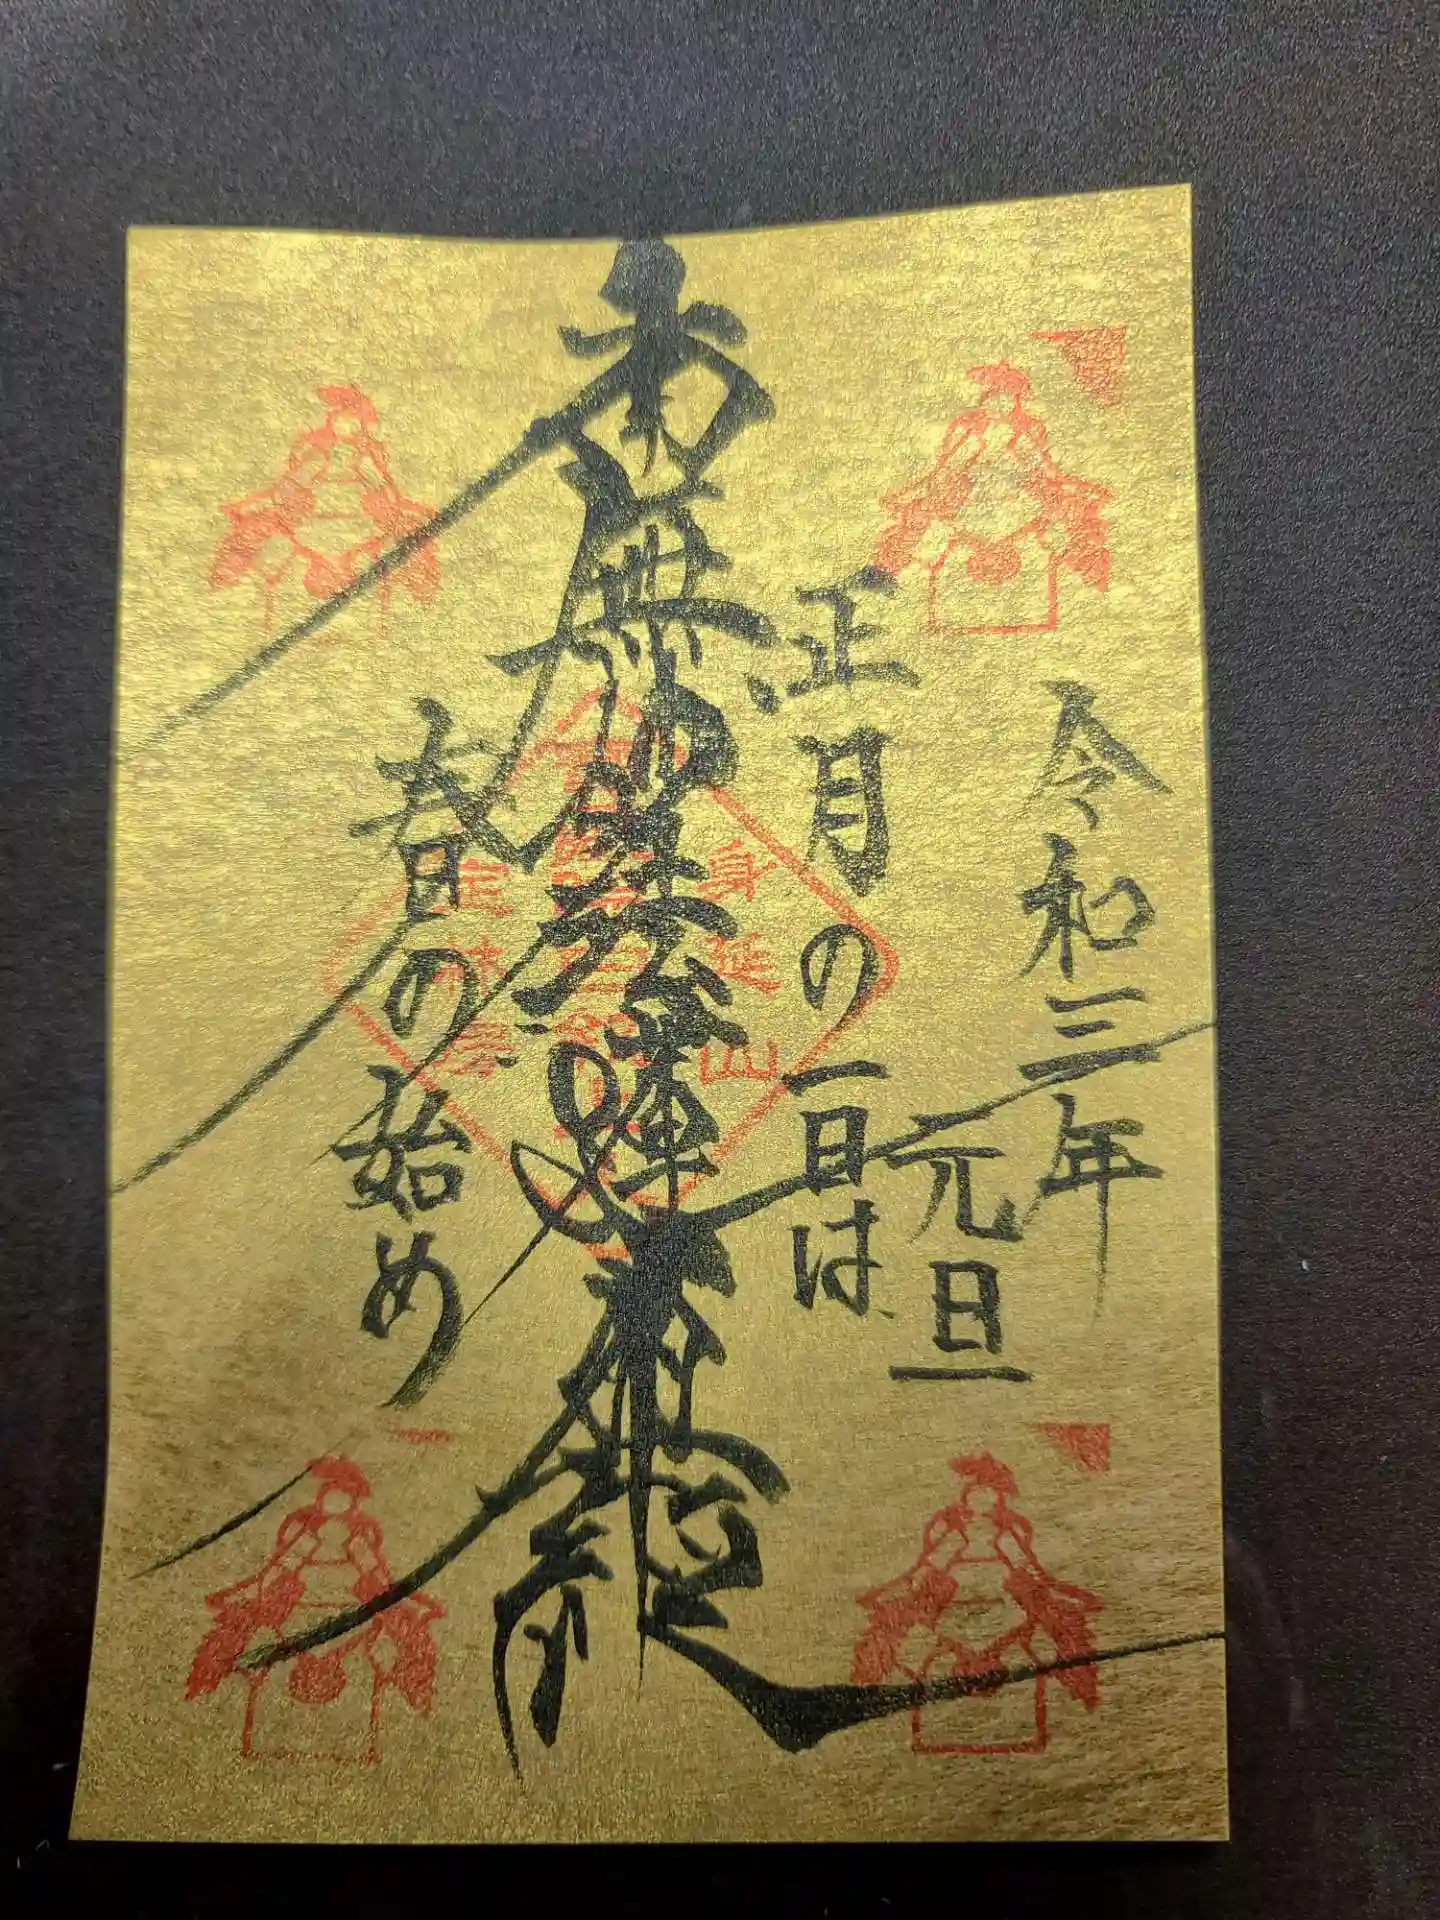 令和三年
元旦
正月の一日は
南無妙法蓮華経
春の始め
身延山